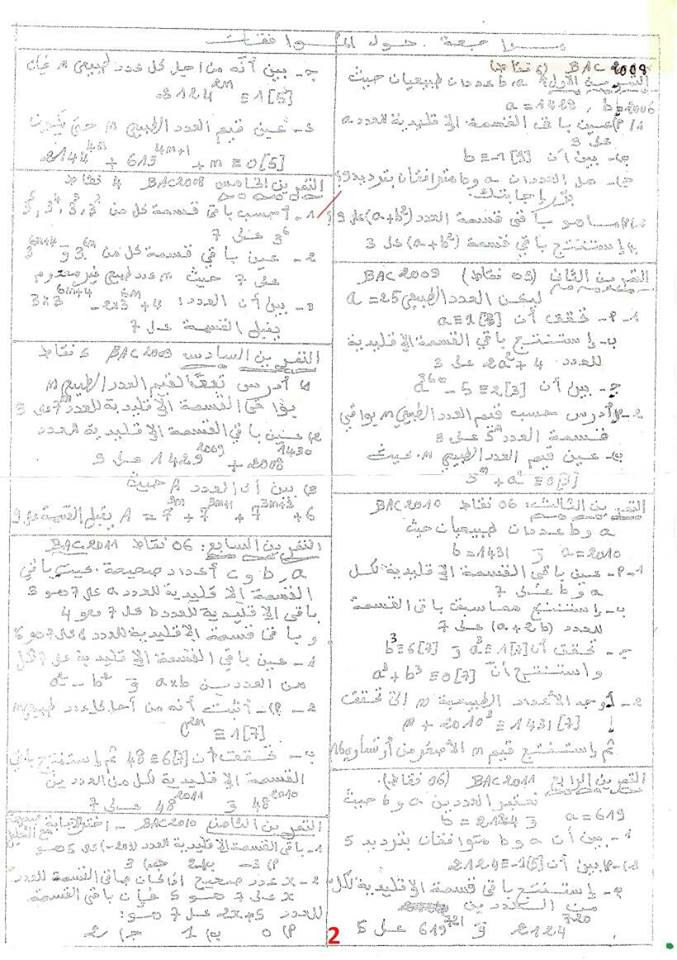 مراجعة حول الموافقات
BAC 2008 (5 نقاط)
التمرين الأول: a و b عددان طبيعيان حيث
a = 1429 , b = 2006
1/ P) عين باقي القسمة الإقليدية للعدد a
على 9
ب) بين أن b ≡ -1[9]
ج) هل العددان a و b متوافقان بترديد 9؟
برر إجابتك
2/ P) ما هو باقي قسمة العدد (a+b²) على 9؟
ب) إستنتج باقي قسمة (a+b²) على 3
التمرين الثاني (05 نقاط) BAC 2009
ليكن العدد الطبيعي a = 25
1- P- تحقق أن a ≡ 1[3]
ب- إستنتج باقي القسمة الإقليدية
للعدد 2a²+4 على 3
ج- بين أن
2- P) أدرس حسب قيم العدد الطبيعي n بواقي
قسمة العدد 5ⁿ على 3
ب- عين قيم العدد الطبيعي n بحيث
5ⁿ + a² ≡ 0[3]
التمرين الثالث: 06 نقاط BAC 2010
a و b عددان طبيعيان حيث
a = 2010 و b = 1431
1- P- عين باقي القسمة الإقليدية لكل
a و b على 7
ب- إستنتج مما سبق باقي القسمة
للعدد (a+2b) على 7
ج- تحقق أن a³ ≡ 1[7] و b³ ≡ 6[7]
واستنتج أن a³ + b³ ≡ 0[7]
2- أوجد الأعداد الطبيعية n التي تحقق
n + 2010³ ≡ 1431[7]
ثم إستنتج قيم n الأصغر من أو تساوي 16
التمرين الرابع BAC 2011 (06 نقاط).
نعتبر العددين a و b حيث
a = 619 و b = 2124
1- بين أن a و b متوافقان بترديد 5
2- P) بين أن 2124 ≡ -1[5]
ب- إستنتج باقي قسمة الإقليدية لكل
من العددين
2124⁷²⁰ و 619⁷²¹ على 5
ج- بين أنه من أجل كل عدد طبيعي n فإن
2124²ⁿ ≡ 1[5]
3- عين قيم العدد الطبيعي n حتى يكون
2124⁴ⁿ + 619⁴ⁿ⁺¹ + n ≡ 0[5]
التمرين الخامس BAC 2008 4 نقاط
1- أحسب باقي قسمة كل من
3⁶ على 7
2- عين باقي قسمة كل من 3⁶ⁿ و 3⁶ⁿ⁺⁴
على 7 حيث n عدد طبيعي غير معدوم
3- بين أن العدد:
يقبل القسمة على 7
التمرين السادس BAC 2009 5 نقاط
1) أدرس تبعا لقيم العدد الطبيعي n
بواقي القسمة الإقليدية للعدد 7ⁿ على 9
2) عين باقي القسمة الإقليدية للعدد
1429²⁰⁰⁹ + 2008¹⁴³⁰ على 9
3) بين أن العدد A حيث
يقبل القسمة على 9
التمرين السابع: 06 نقاط BAC 2011
a, b و c أعداد صحيحة حيث باقي
القسمة الإقليدية للعدد a على 7 هو 3
باقي الإقليدية للعدد b على 7 هو 4
وباقي قسمة الإقليدية للعدد c على 7 هو 6
1- عين باقي القسمة الإقليدية على 7 لكل
من العددين a×b و a² - b²
2- P- أثبت أنه من أجل كل عدد طبيعي n
c²ⁿ ≡ 1[7]
ب- تحقق أن 48 ≡ 6[7] ثم إستنتج باقي
القسمة الإقليدية لكل من العددين
48²⁰¹⁰ و 48²⁰¹¹ على 7
التمرين الثامن BAC 2010 - اختر الإجابة الصحيحة
1- باقي القسمة الإقليدية للعدد على 5 هو
P) 3- ب) 2 ج) 3
2- x عدد صحيح إذا كان باقي القسمة للعدد
x على 7 هو 5 فإن باقي القسمة
للعدد 2x+5 على 7 هو:
P) 0 ب) 1 ج) 2
2